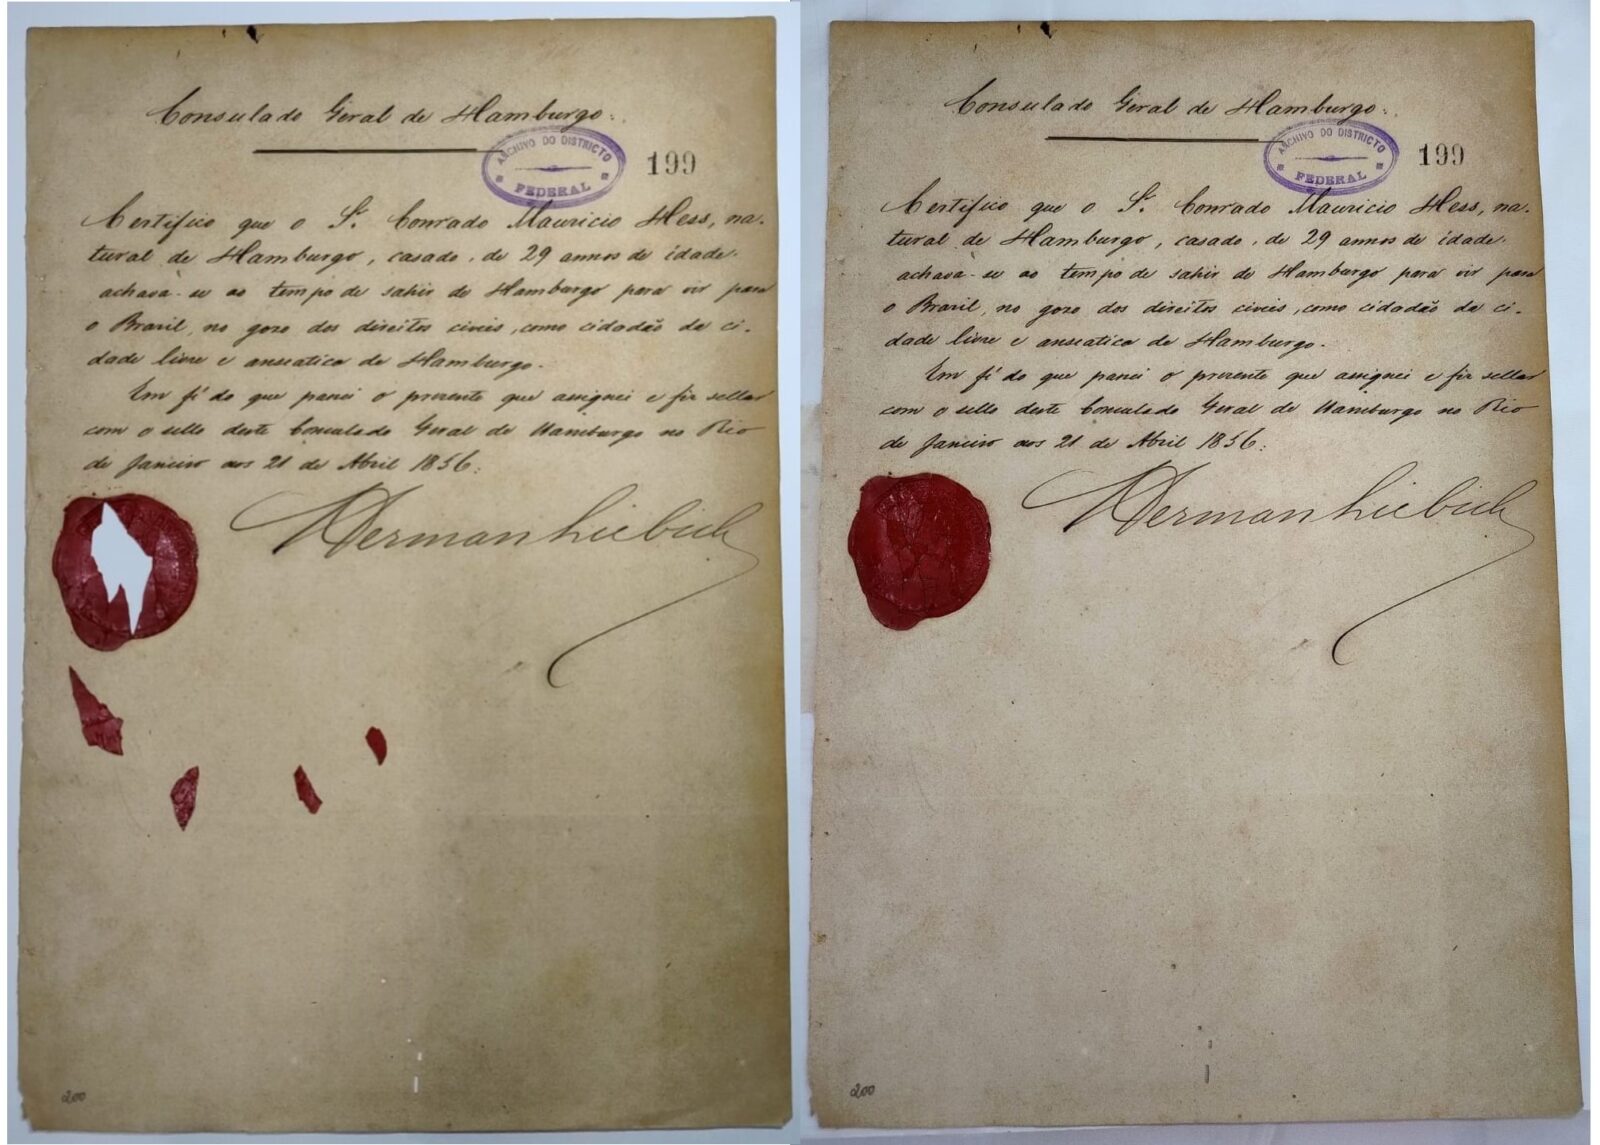 Consulado Geral de Hamburgo.
ARCHIVO DO DISTRICTO
FEDERAL
199
Certifico que o Sr. Conrado Mauricio Hess, na-
tural de Hamburgo, casado, de 29 annos de idade
achava-se ao tempo de sahir de Hamburgo para vir para
o Brazil, no gozo dos direitos civeis, como cidadão da ci-
dade livre e anseatica de Hamburgo.
Em fé do que passei o prezente que assignei e fiz sellar
com o sello deste Consulado Geral de Hamburgo no Rio
de Janeiro aos 21 de Abril 1856.
Herman Liebich
200
Consulado Geral de Hamburgo.
ARCHIVO DO DISTRICTO
FEDERAL
199
Certifico que o Sr. Conrado Mauricio Hess, na-
tural de Hamburgo, casado, de 29 annos de idade
achava-se ao tempo de sahir de Hamburgo para vir para
o Brazil, no gozo dos direitos civeis, como cidadão da ci-
dade livre e anseatica de Hamburgo.
Em fé do que passei o prezente que assignei e fiz sellar
com o sello deste Consulado Geral de Hamburgo no Rio
de Janeiro aos 21 de Abril 1856.
Herman Liebich
200